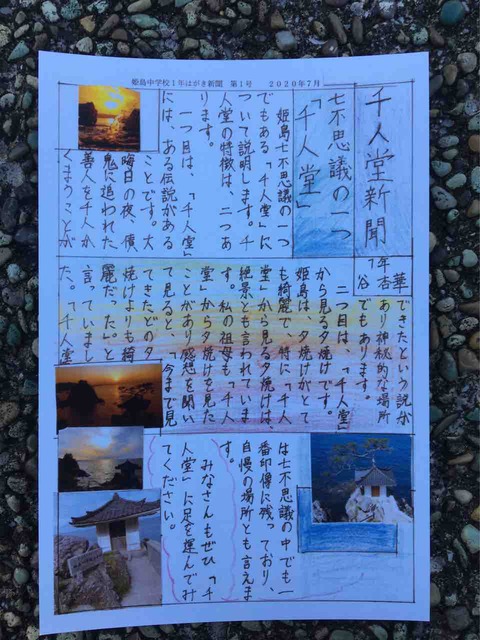 姫島中学校1年はがき新聞 第1号 2020年7月
千人堂新聞
七不思議の一つ
「千人堂」
姫島七不思議の一つ
でもある「千人堂」に
ついて説明します。千
人堂の特徴は、二つあ
ります。
一つ目は、「千人堂」
には、ある伝説がある
ことです。大
晦日の夜、債
鬼に追われた
善人を千人か
くまうことが
できたという説が
あり神秘的な場所
でもあります。
二つ目は、「千人堂」
から見る夕焼けです。
姫島は、夕焼けがとて
も綺麗で、特に「千人
堂」から見る夕焼けは、
絶景とも言われていま
す。私の祖母も「千人
堂」から夕焼けを見た
ことがあり感想を聞い
て見ると、「今まで見
てきたどの夕
焼けよりも綺
麗だった。」と
言っていまし
た。「千人堂」
は七不思議の中でも一
番印象に残っており、
自慢の場所とも言えま
す。
みなさんもぜひ「千
人堂」に足を運んでみ
てください。